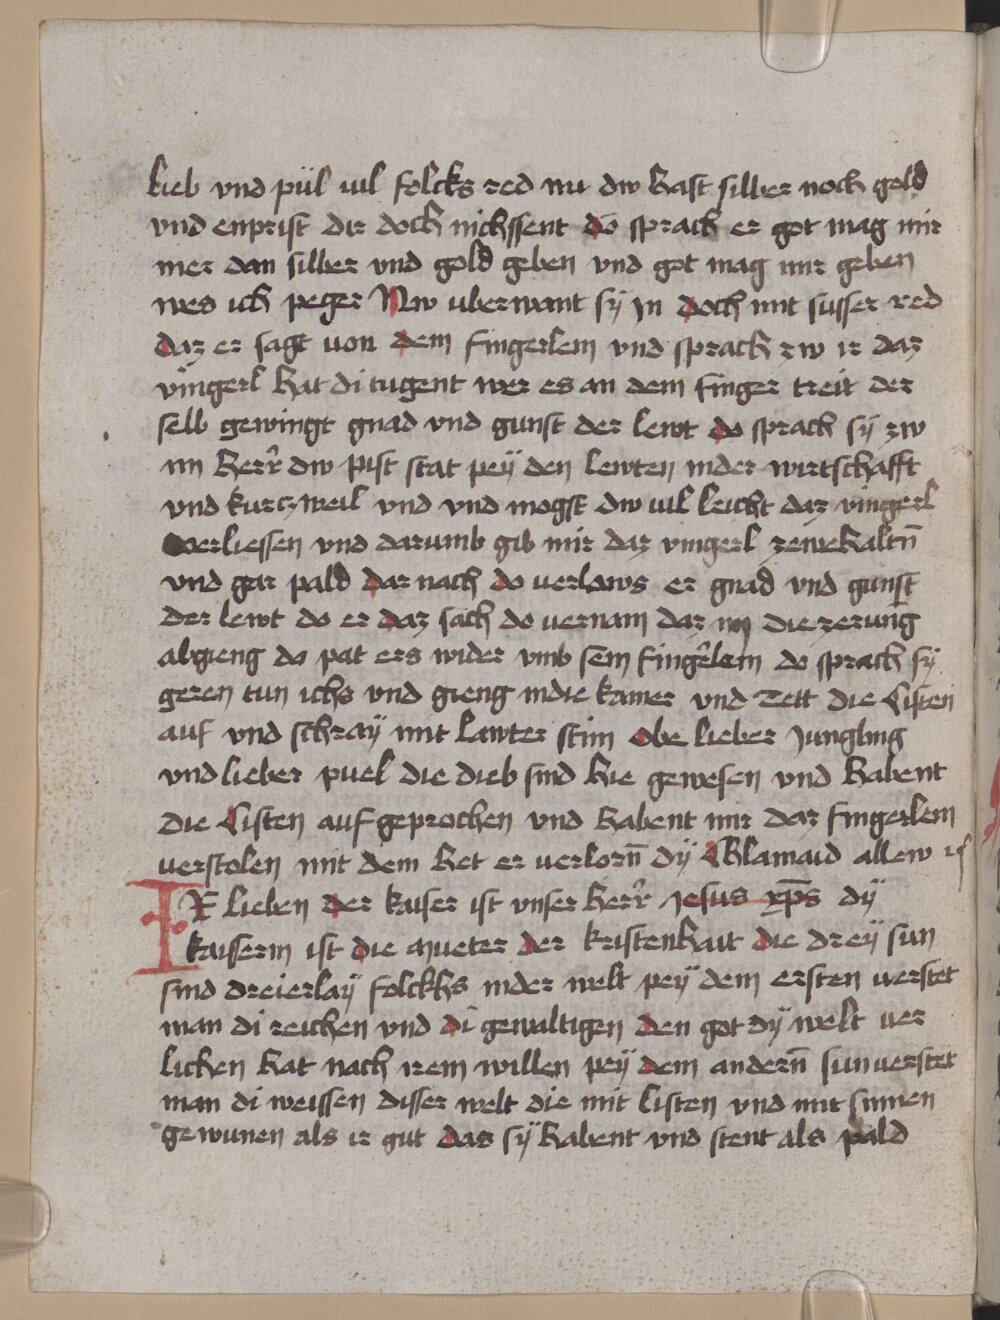 lieb vnd pül uil folcks red nu dw hast silber noch gold
vnd enprist dir doch nichssent do sprach er got mag mir
mer dan silber vnd gold geben vnd got mag mir geben
wes ich peger Nw uberwant sÿ jn doch mit susser red
daz er sagt uon dem fingerlein vnd sprach zw ir daz
vingerl hat di tugent wer es an dem finger treit der
selb gewingt gnad vnd gunst der lewt do sprach sÿ zw
im herr dw pist stat peÿ den lewten inder wirtschafft
vnd kurczweil vnd vnd mogst dw uil leicht daz vingerl
verliessen vnd darumb gib mir daz vingerl zewehaltn̄
vnd gar pald dar nach do uerlaws er gnad vnd gunst
der lewt do er daz sach do uernam daz im die zerung
abgieng do pat ers wider vmb sein fingerlein do sprach sÿ
geren tun ichs vnd gieng indie kamer vnd tett die kisten
auf vnd schraÿ mit lawter stim obe lieber jungling
vnd lieber puel die dieb sind hie gewesen vnd habent
die kisten auf geprochen vnd habent mir daz fingerlein
verstolen mit dem het er uerlorn̄ dÿ klainaid allew
IR lieben der kaiser ist vnser herr jesus xp̄s dÿ
kaiserin ist die mueter der kristenhait die dreÿ sun
sind dreierlaÿ folckhs inder welt peÿ dem ersten uerstet
man di reichen vnd di gewaltigen den got dÿ welt uer
lichen hat nach irem willen peÿ dem andern̄ sun uerstet
man di weissen disser welt die mit listen vnd mit sinnen
gewunen als ir gut das sÿ habent vnd stent als pald